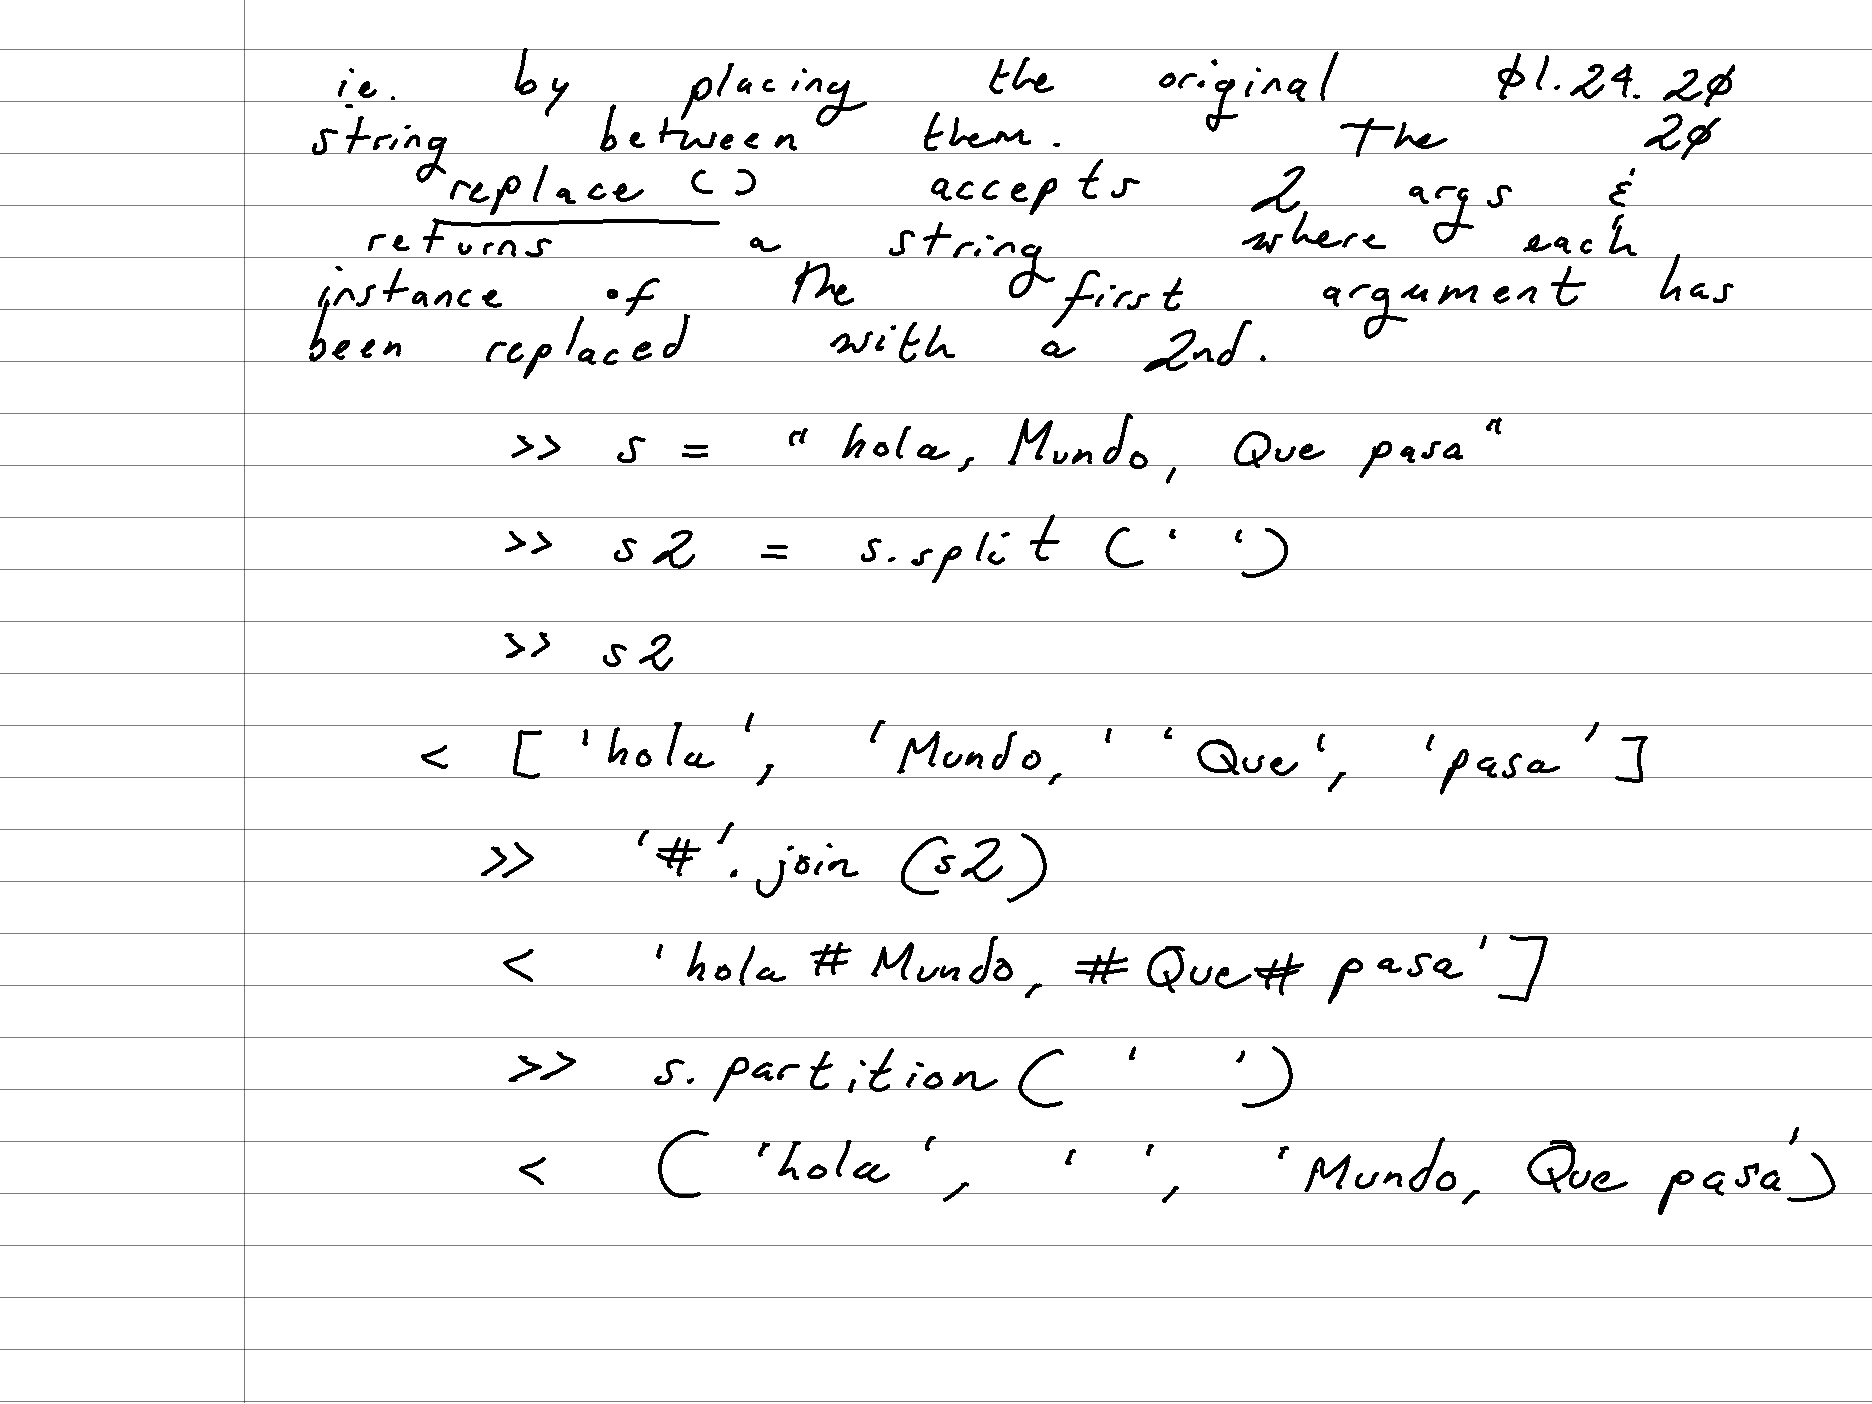 ie. by placing the original 01.24.20
string between them. The 20
replace () accepts 2 args &
returns a string where each
instance of the first argument has
been replaced with a 2nd.
>> s = "hola, Mundo, Que pasa"
>> s2 = s.split (' ')
>> s2
< ['hola', 'Mundo,' 'Que', 'pasa']
>> '#'.join (s2)
< 'hola # Mundo, # Que # pasa']
>> s.partition (' ')
< ('hola', ' ', 'Mundo, Que pasa')